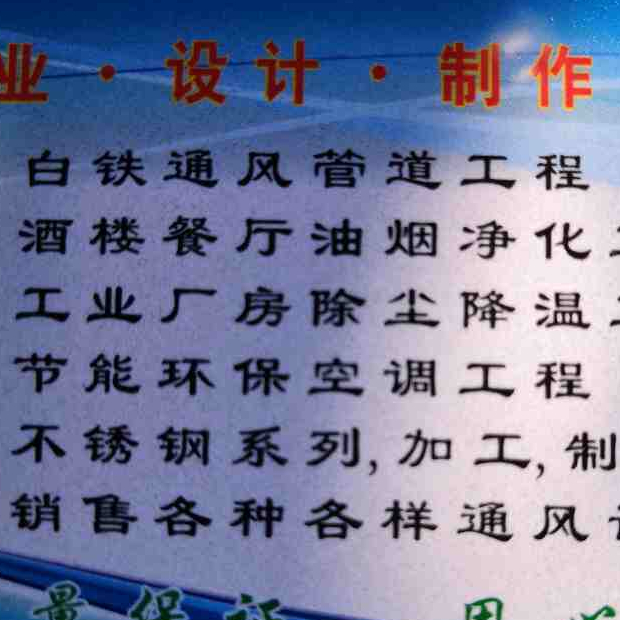 业·设计·制作
白铁通风管道工程
酒楼餐厅油烟净化
工业厂房除尘降温
节能环保空调工程
不锈钢系列,加工,制
销售各种各样通风
量保证 用心